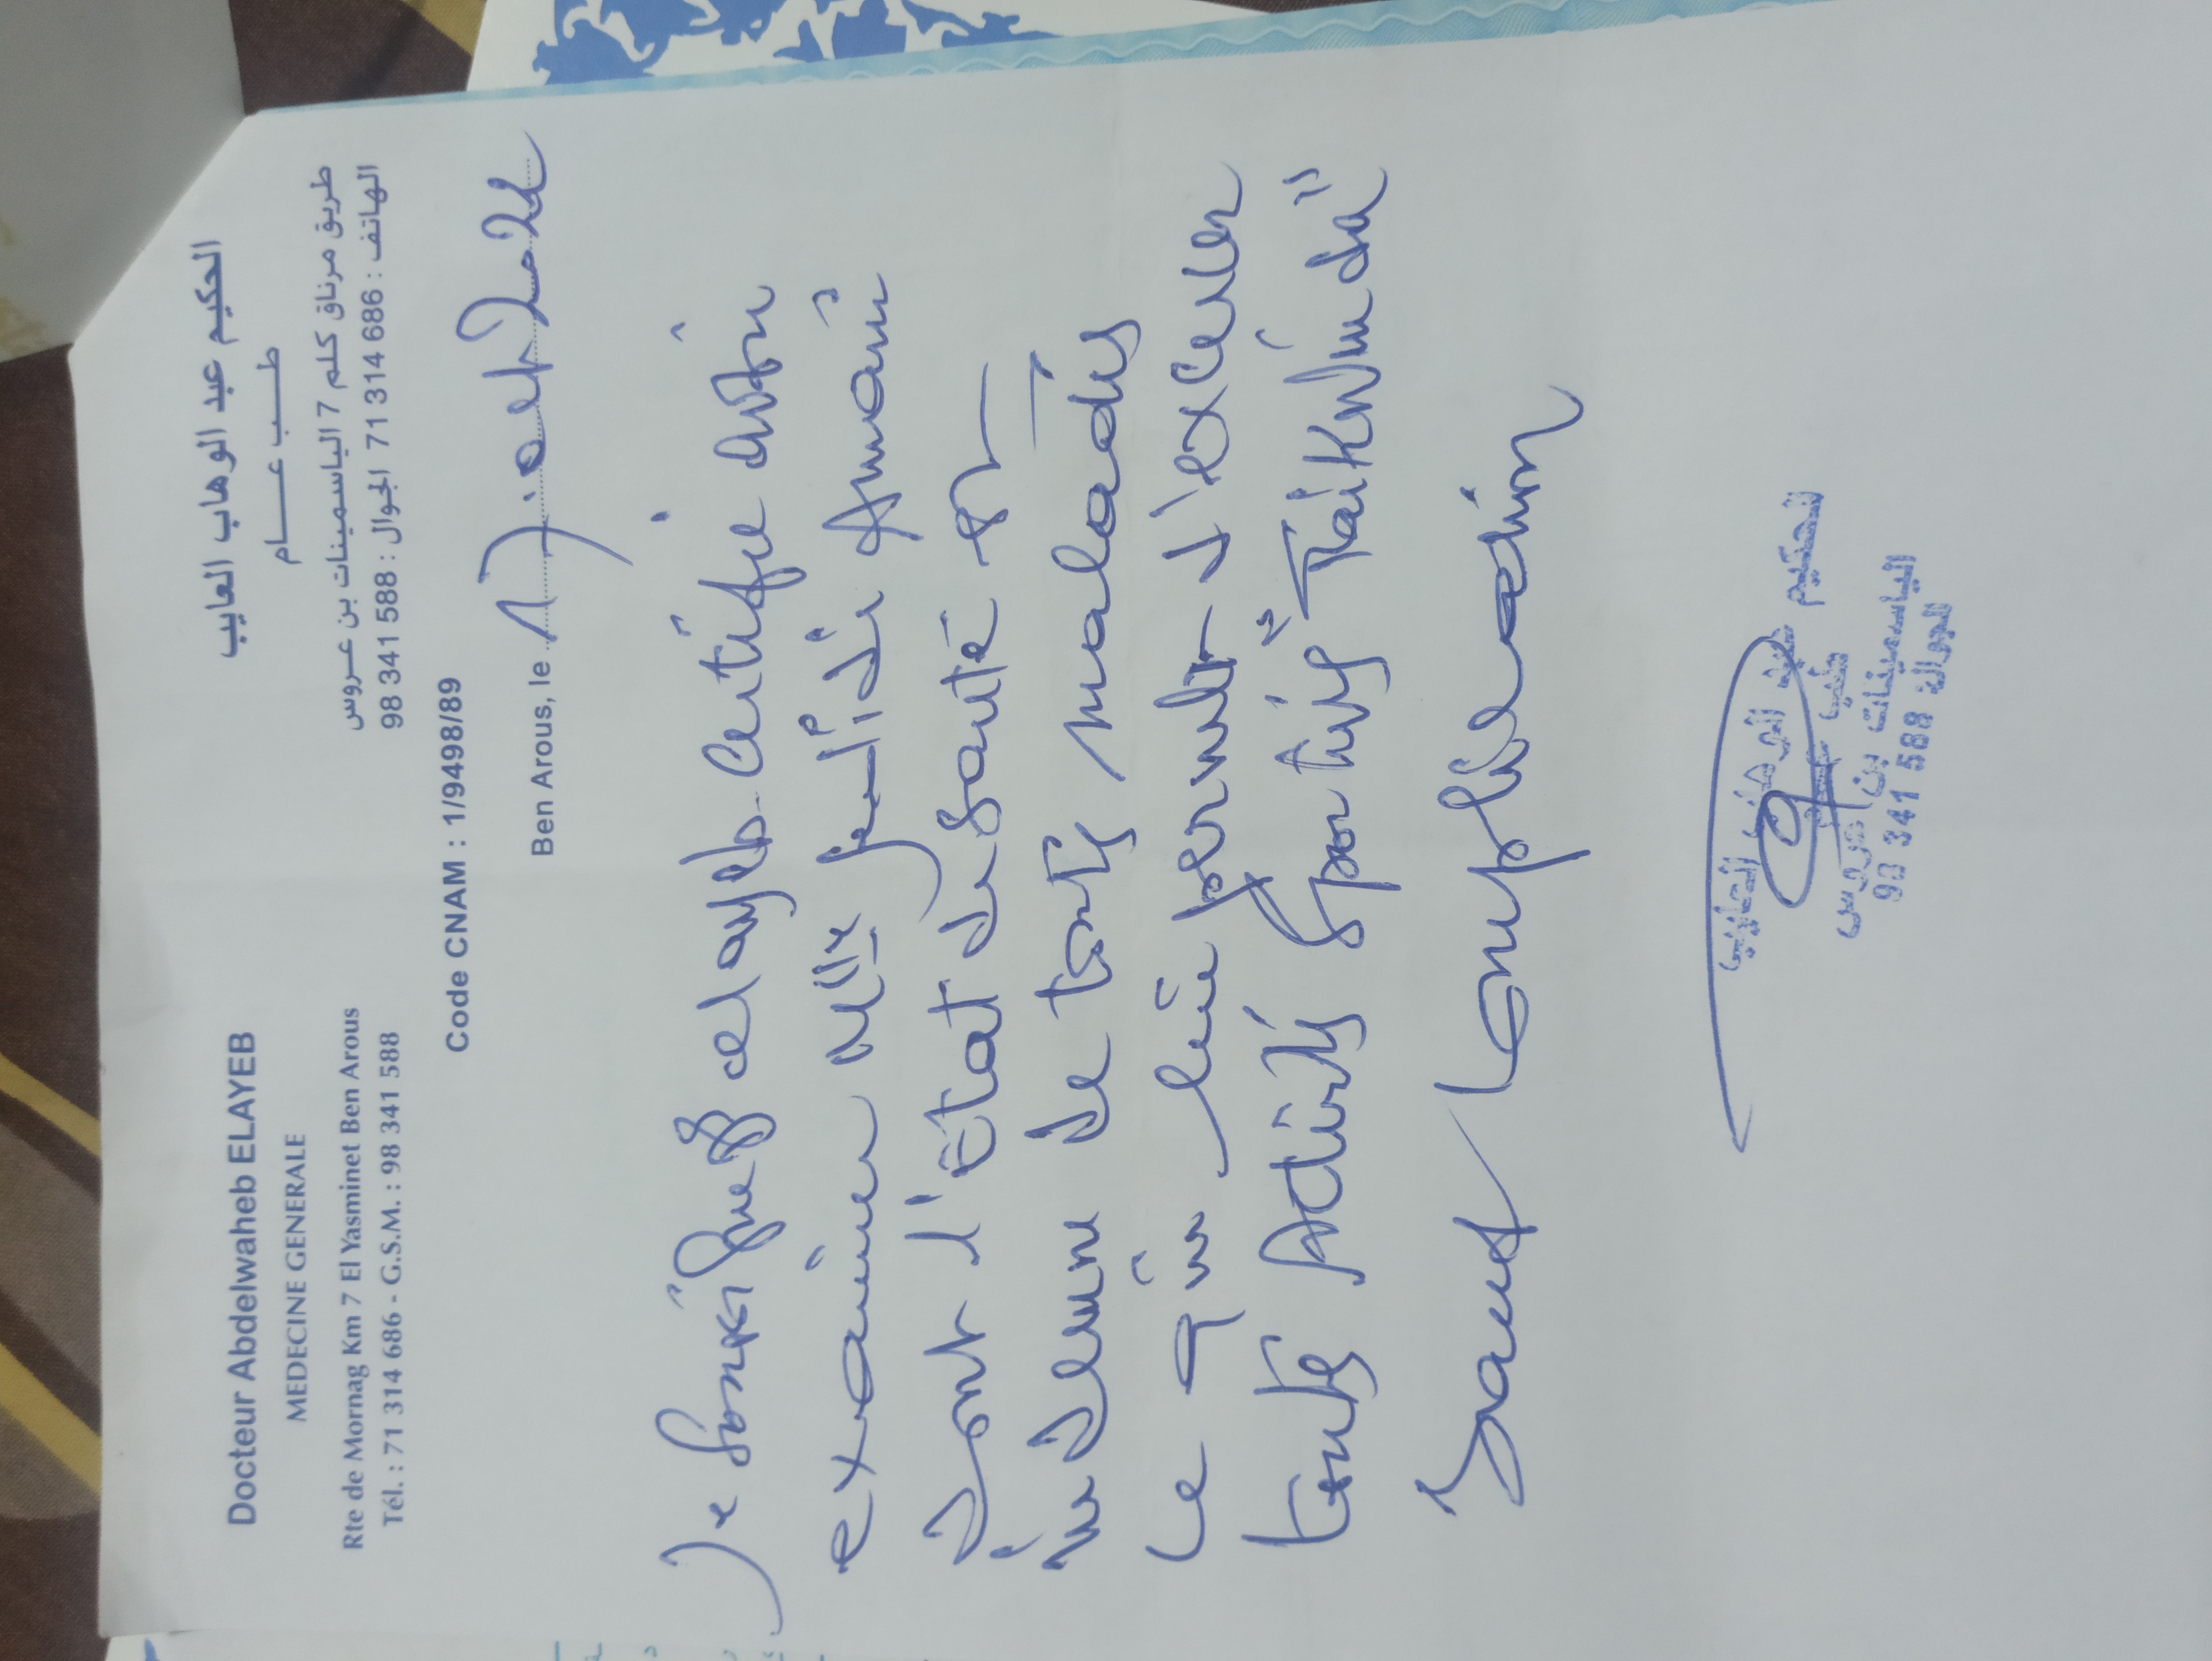 Docteur Abdelwaheb ELAYEB
MEDECINE GENERALE
Rte de Mornag Km 7 El Yasminet Ben Arous
Tél. : 71 314 686 - G.S.M. : 98 341 588
الحكيم عبد الوهاب العايب
طب عام
طريق مرناق كلم 7 الياسمينات بن عروس
الهاتف : 686 314 71 الجوال : 588 341 98
Code CNAM : 1/9498/89
Ben Arous, le
Je soussigné el ayeb certifie avoir
examiner Mlle jellidi Amani
dont l'état de santé est
indemne de toute maladies
ce qui lui permet d'exercer
toute Activité sportive "Taikwindu"
sauf complication
الحكيم عبد الوهاب العايب
طب عام
الياسمينات بن عروس
الجوال 588 341 98